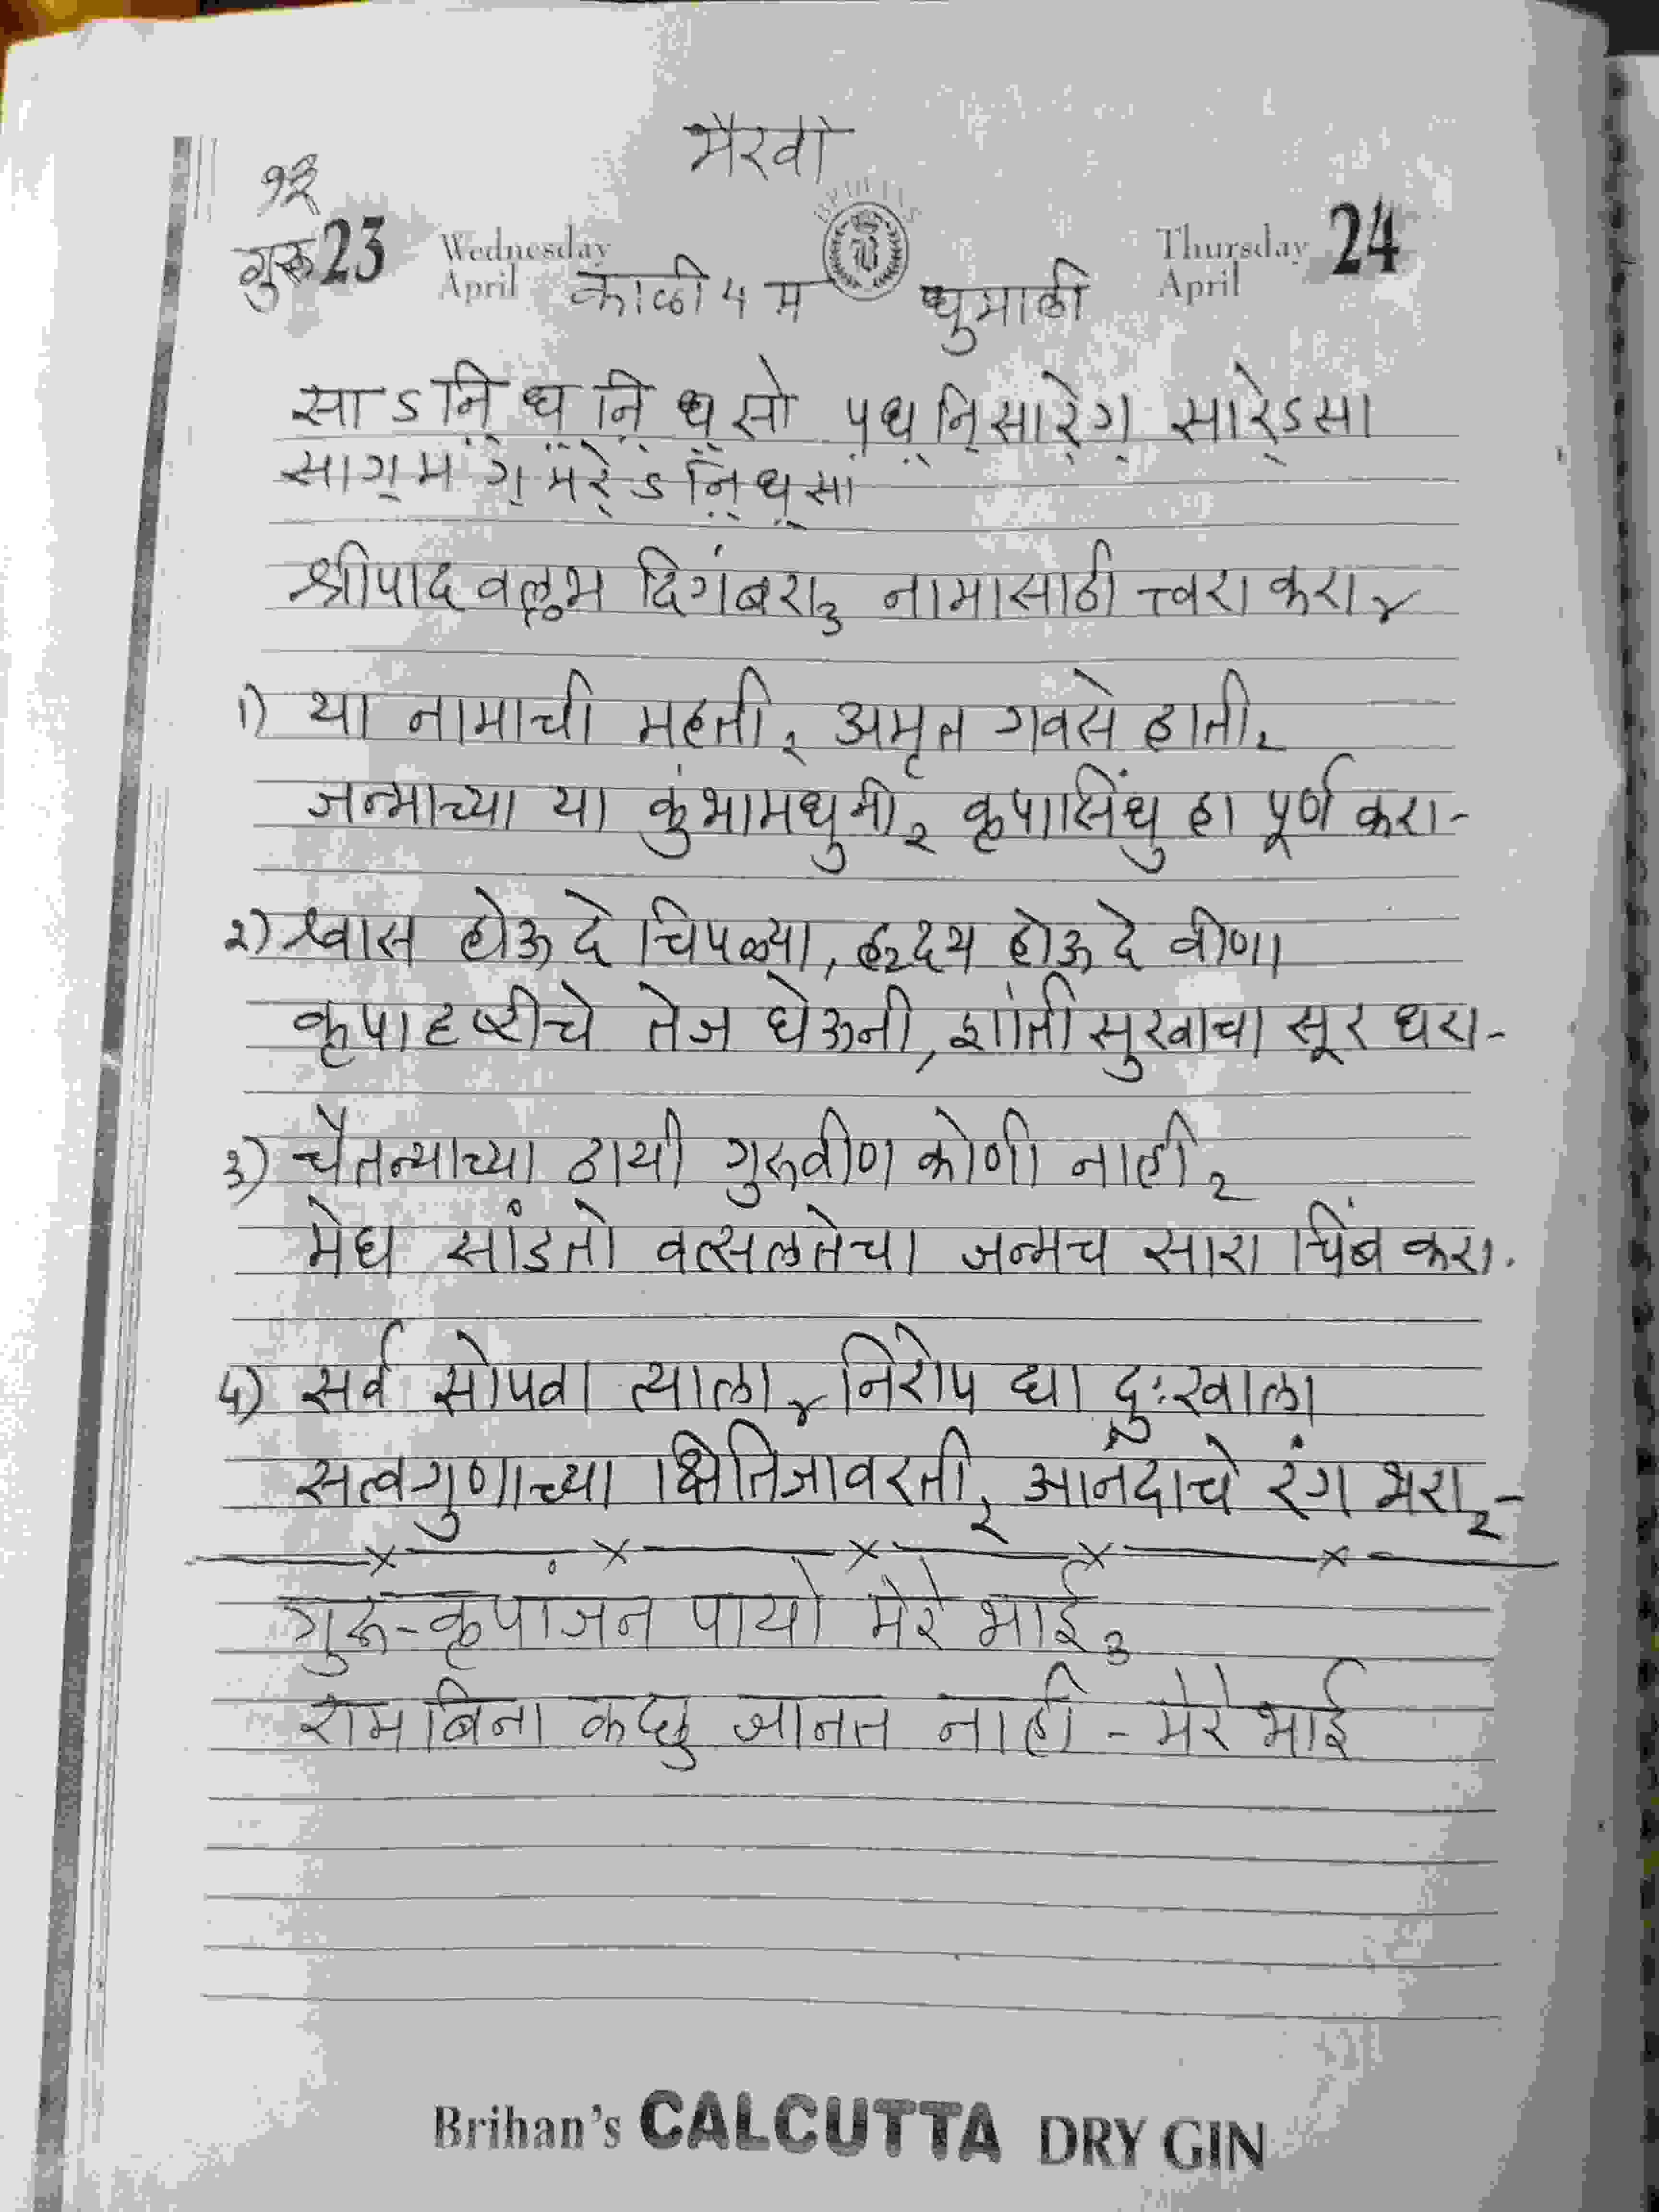 भैरवी
१२
गुरू 23 Wednesday April Thursday April 24
काळी ५ म धुमाळी
सा ऽ नि॒ ध॒ नि॒ ध॒ सो प़ ध॒ नि॒ सा रे॒ ग॒ सा रे॒ ऽ सा
सा ग॒ म ग॒ म रे॒ ऽ नि॒ ध॒ सा
श्रीपाद वल्लभ दिगंबरा३ नामासाठी त्वरा करा४
१) या नामाची महती२ अमृत गवसे हाती२
जन्माच्या या कुंभामधुनी२ कृपासिंधु हा पूर्ण करा-
२) श्वास होऊ दे चिपळ्या, हृदय होऊ दे वीणा
कृपादृष्टीचे तेज घेऊनी, शांती सुखाचा सूर धरा-
३) चैतन्याच्या ठायी गुरुवीण कोणी नाही२
मेघ सांडतो वत्सलतेचा जन्मच सारा चिंब करा.
४) सर्व सोपवा त्याला४ निरोप द्या दुःखाला
सत्वगुणाच्या क्षितिजावरती२ आनंदाचे रंग भरा२-
गुरू-कृपांजन पायो मेरे भाई३
राम बिना कछु जानत नाही - मेरे भाई
Brihan's CALCUTTA DRY GIN